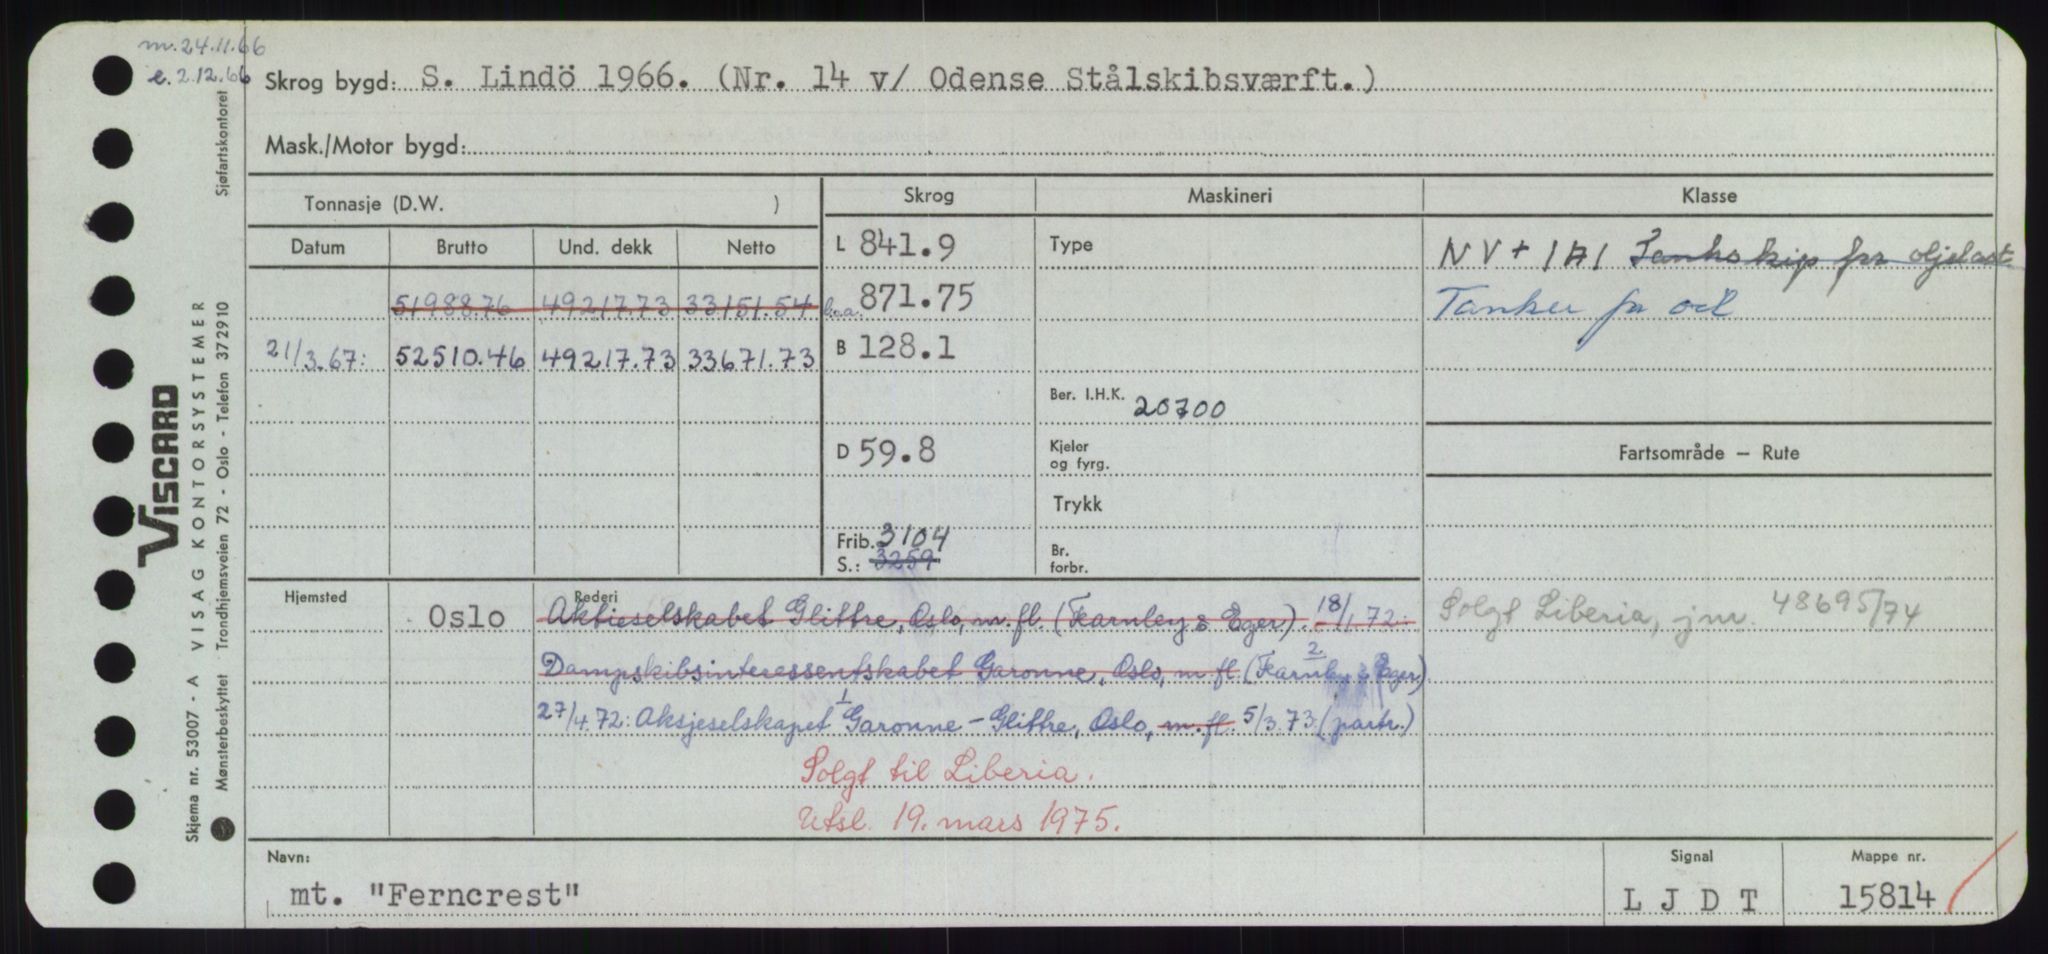 m. 24.11.66
e. 2.12.66
Skrog bygd: S. Lindö 1966. (Nr. 14 v/ Odense Stålskibsværft.)
Mask./Motor bygd:
Tonnasje (D.W. )
Skrog
Maskineri
Klasse
Datum Brutto Und. dekk Netto
L 841.9
Type
NV + 1A1 Tankskip for oljelast
51988.76 49217.73 33151.54
l.o.a. 871.75
Tanker for oil
21/3.67: 52510.46 49217.73 33671.73
B 128.1
Ber. I.H.K. 20700
D 59.8
Kjeler
og fyrg.
Fartsområde — Rute
Trykk
Frib. 3104
S.: 3259
Br.
forbr.
Hjemsted
Rederi
Oslo Aktieselskabet Glittre, Oslo, m.fl. (Fearnley & Eger). 18/1.72:
Solgt Liberia, jnr. 48695/74
2
Dampskibsinteressentskabet Garonne, Oslo, m.fl. (Fearnley & Eger)
1
27/4.72: Aksjeselskapet Garonne – Glittre, Oslo, m.fl. 5/3.73 (partr.)
Solgt til Liberia.
Utsl. 19. mars 1975.
Navn:
mt. "Ferncrest"
Signal
L J D T
Mappe nr.
15814
VISCARD
VISAG KONTORSYSTEMER
Skjema nr. 53007 - A
Mønsterbeskyttet Trondhjemsveien 72 - Oslo - Telefon 372910
Sjøfartskontoret